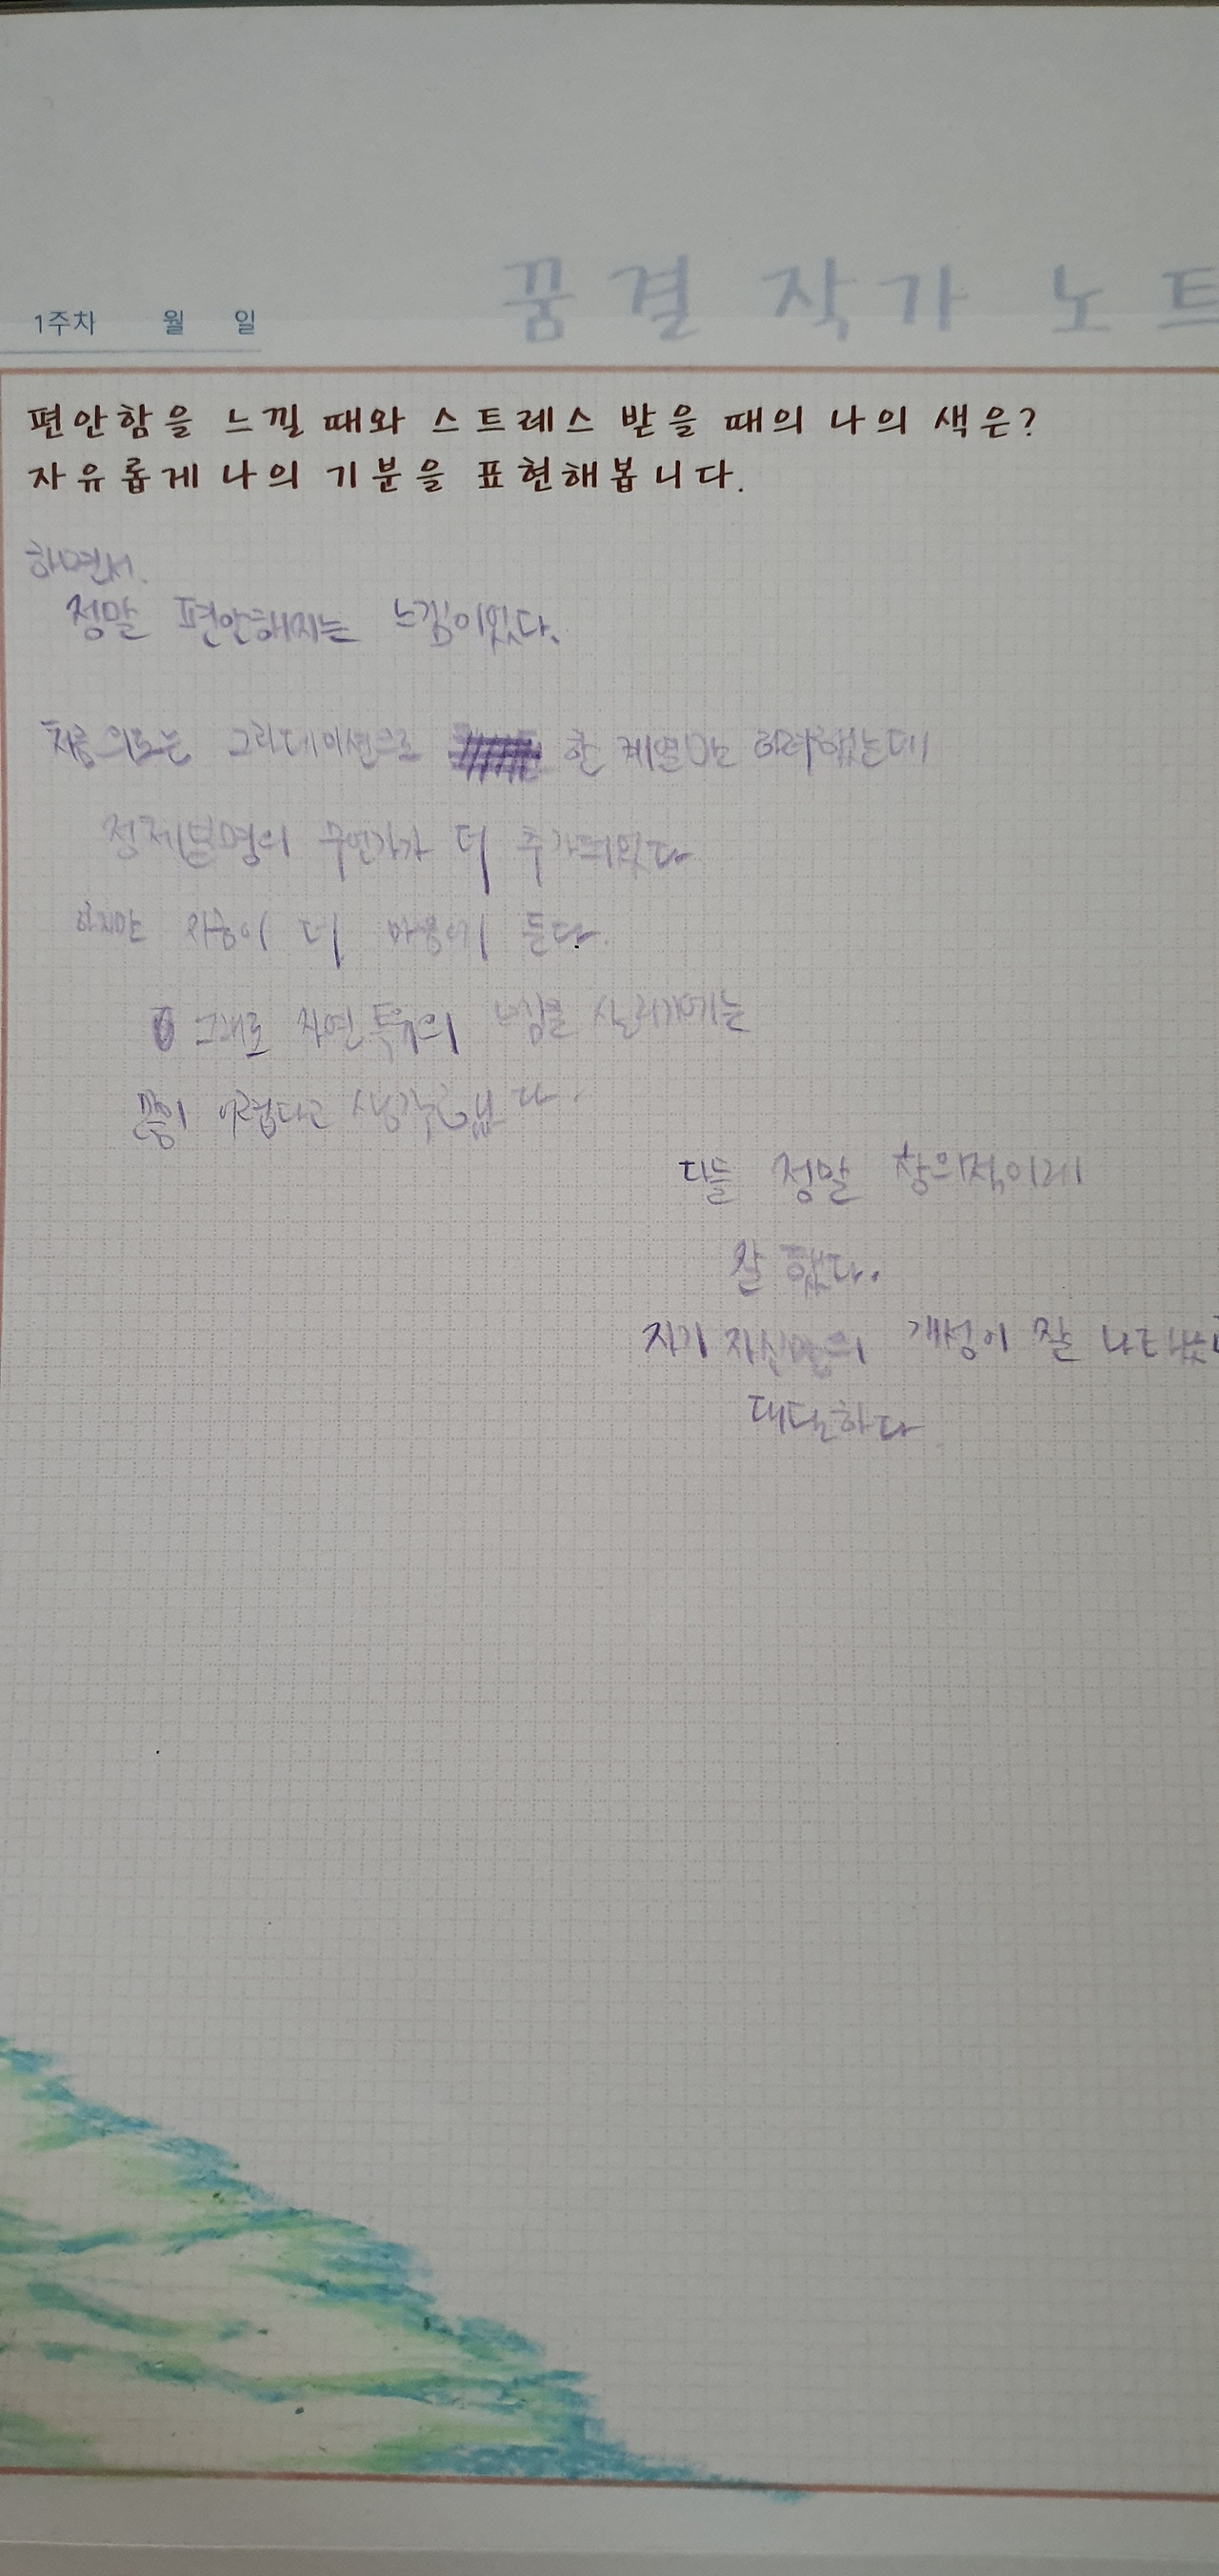 꿈결 작가 노트
1주차 월 일
편안함을 느낄 때와 스트레스 받을 때의 나의 색은?
자유롭게 나의 기분을 표현해봅니다.
하면서.
정말 편안해지는 느낌이있다.
처음 의도는 그라데이션으로 한 계열만 하려했는데
정체불명의 무언가가 더 추가되있다
하지만 지금이 더 마음에 든다.
그대로 자연 특유의 느낌을 살리기에는
어렵다고 생각했다.
다들 정말 창의적이게
잘 했다.
자기 자신만의 개성이 잘
대단하다